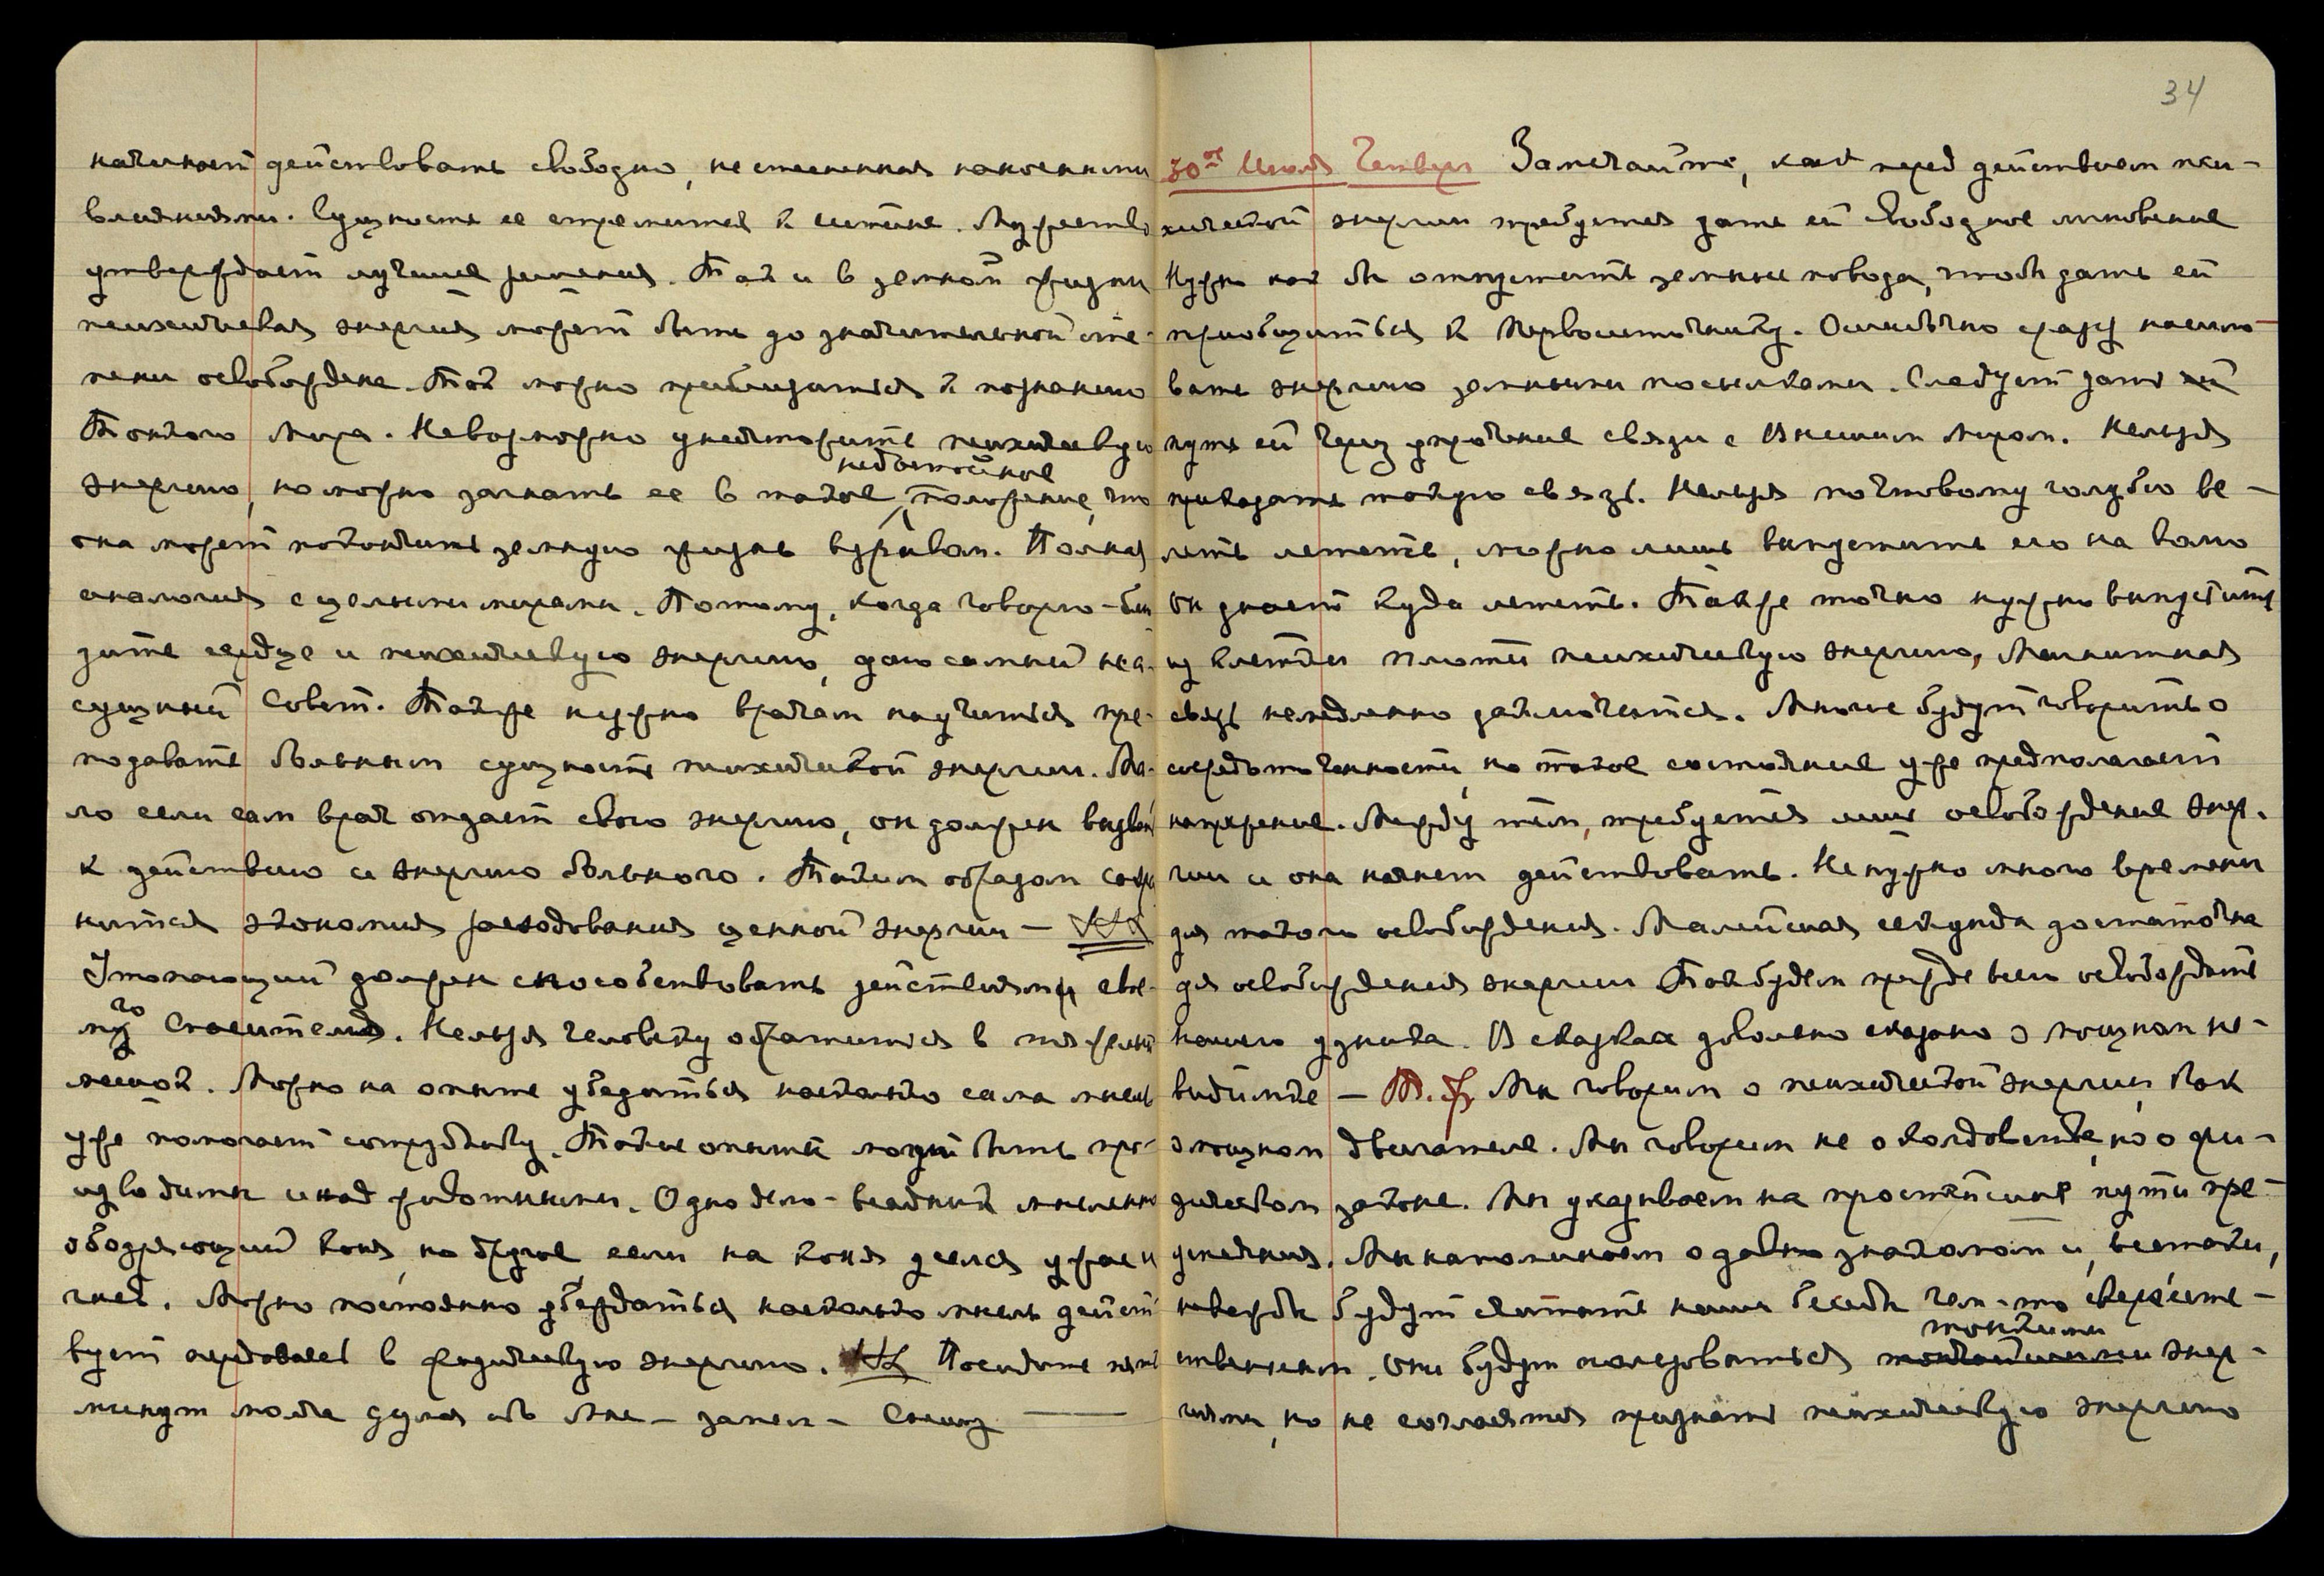 начинает действовать свободно, не стесненная наносными
влияниями. Сущность ее стремится к истине. Мудрость
утверждает лучшие решения. Так и в земной жизни
психическая энергия может быть до значительной сте-
пени освобождена. Так можно приблизиться к познанию
Тонкого Мира. Невозможно уничтожить психическую
недостойное
энергию, но можно загнать ее в такое положение, что
она может покончить земную жизнь взрывом. Полная
аналогия с целыми мирами. Потому, когда говорю – бер
гите сердце и психическую энергию, даю самый нас
сущный Совет. Также нужно врачам научиться пре-
подавать больным сущность психической энергии. Ма-
ло если сам врач отдает свою энергию, он должен вызвать
к действию и энергию больного. Таким образом сохра
нится экономия расходования ценной энергии –
Утопающий должен способствовать действиям сво-
его Спасителя. Нельзя человеку обратиться в тяжелый
мешок. Можно на опыте убедиться насколько сама мысль
уже помогает сотруднику. Такие опыты могут быть про-
изводимы и над животными. Одно дело – всадник мысленно
ободряющий коня, но другое если на коня уселся ужас и
гнев. Можно постоянно убеждаться насколько мысль дейст
вует передавая в физическую энергию. Посидите пять
минут молча думая обо Мне – затем – Спешу
34
30ое Июля Четверг Замечайте, как перед действием пси-
хической энергии требуется дать ей свободное мгновение
Нужно как бы отпустить земные повода, чтобы дать ей
приобщиться к Первоисточнику. Ошибочно сразу насило-
вать энергию земными посылками. Следует дать
путь ей через упрочение связи с Высшим Миром. Нельзя
приказать такую связь. Нельзя почтовому голубю ве-
леть лететь, можно лишь выпустить его на волю
Он знает куда лететь. Также точно нужно выпустить
из клетки плоти психическую энергию, Магнитная
связь немедленно заключится. Многие будут говорить о
сосредоточенности, но такое состояние уже предполагает
напряжение. Между тем, требуется лишь освобождение энер-
гии и она начнет действовать. Не нужно много времени
для такого освобождения. Малейшая секунда достаточна
для освобождения энергии Так будем прежде всего освобождать
нашего узника. В сказках довольно сказано о мощном не-
видимке – Мы говорим о психической энергии, как
о мощном двигателе. Мы говорим не о колдовстве, но о фи-
зическом законе. Мы указываем на простейшие пути пре
успеяния. Мы напоминаем о давно знакомом и, все-таки,
невежды будут считать наши беседы чем-то сверхесте-
тонкими
ственным. Они будут пользоваться тончайшими энер-
гиями, но не согласятся признать психическую энергию